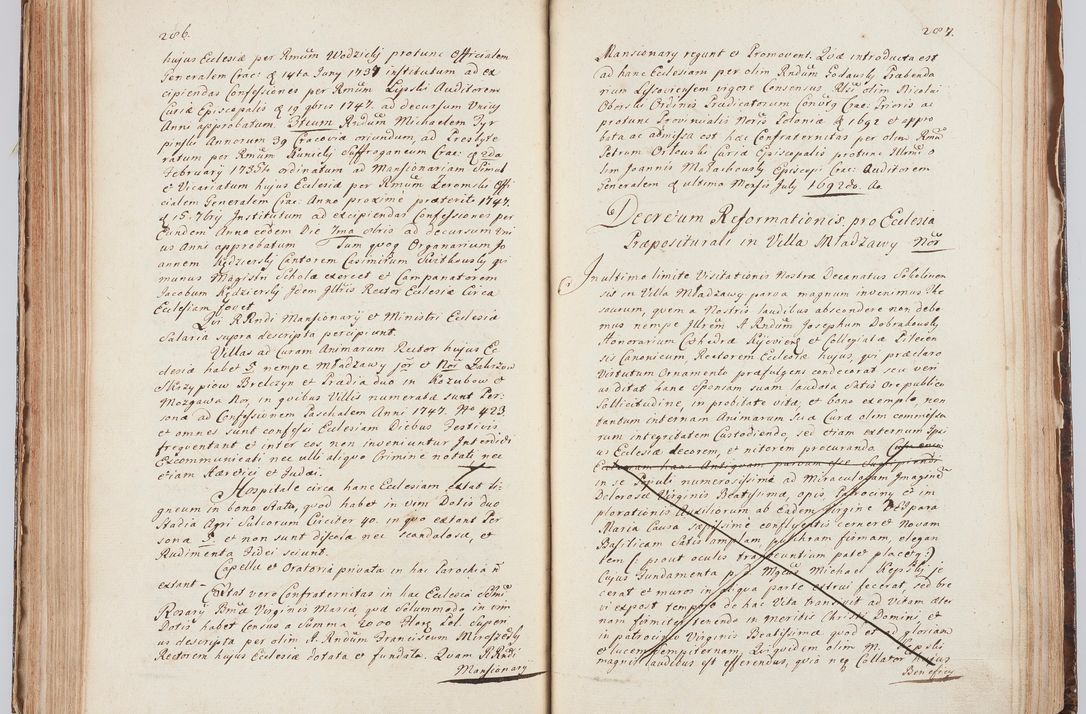 286.
hujus Ecclesiæ per Rmum Wodzicky protunc Officialem
Generalem Crac: d 14ta Juny 1737 institutum ad ex
cipiendas Confessiones per Rmum Lipski Auditorem
Curiæ Episcopalis d 19 9bris 1747. ad decursum Unius
Anni approbatum. Item Rndum Michaelem
Annorum 39 Cracovia oriundum, ad Presbyte
ratum per Rmum Kunicky Suffraganeum Crac: d 2da
February 1735to ordinatum ad Mansionariam Simul
et Vicariatum hujus Ecclesiæ per Rmum Zeromski Offi
cialem Generalem Crac: Anno proxime præterito 1747.
d 15. 7bry Institutum ad excipiendas Confessiones per
Eundem Anno eodem Die 7ma 9bris ad decursum Uni
us Anni approbatum Tum quoq Organarium Jo
annem Kędzierski Cantorem Casimirum qui
munus Magistri Scholæ exercet et Campanatorem
Jacobum Kędzierski Idem Illris Rector Ecclesiæ Circa
Ecclesiam fovet.
Qui RRndi Mansionary et Ministri Ecclesiæ
Salaria supra descripta percipiunt.
Villas ad Curam Animarum Rector hujus Ec
clesiæ habet 5. nempe Mładzawy jor et Nor Zakrzow
Skrzypiow Brelczyn et Prædia duo in Kozubow et
Mozgawa Nor, in quibus Villis numeratæ sunt Per
sonæ ad Confessionem Paschalem Anni 1747. No 423
et omnes sunt confessi Ecclesiam Diebus Festivis
frequentant et inter eos, non inveniuntur Interdicti
Excommunicati nec ulli aliquo Crimine notati, nec
etiam Hæretici et Judæi.
Hospitale circa hanc Ecclesiam extat li-
gneum in bono statu, quod habet in vim Dotis duo
Stadia Agri Sulcorum Circiter 40. in quo extant Per
sonæ 5. et non sunt discola nec scandalosæ, et
Rudimenta Fidei sciunt.
Capella et Oratoria privata in hac Parochia n
extant - Extat vero Confraternitas in hac Ecclesia SSmi
Rosary Bmæ Virginis Mariæ, quæ Solummodo in vim
Dotis habet Census a Summa 2000 Flor: Pol. Superi
us descripta per olim A. Rndum Franciscum
Rectorem hujus Ecclesiæ dotata et fundata. Quam RRndi
Mansionary
287.
Mansionary regunt et Promovent. Quæ introducta est
ad hanc Ecclesiam per olim Rndum Præbenda
rium vigore Consensus Rssi olim Nicolai
Oborski Ordinis Prædicatorum Convtg Crac: Prioris ac
protunc Provincialis Noris Poloniæ d 1692 et appro
bata ac admissa est hæc Confraternitas per olim Rmu
Petrum Curiæ Episcopalis protunc Illmi o
lim Joannis Małachowski Episcopi Crac: Auditorem
Generalem d ultima Mensis July 1692do. Ao
Decretum Reformationis, pro Ecclesia
Præpositurali in Villa Młodzawy Nor
In ultimo limite Visitationis Nostræ Decanatus Sokolinen
sis in Villa Młodzawy parva magnum invenimus The
saurum, quem a Nostris laudibus abscondere non debe
mus nempe Illrem A Rndum Josephum Dobrakowsky
Honorarium Cathedræ Kijovien et Collegiatæ
sis Canonicum, Rectorem Ecclesiæ hujus, qui præclaro
Virtutum Ornamento præfulgens condecorat seu veri
us ditat hanc Sponsam suam laudata Satis ore publico
Sollicitudine, in probitate vitæ, et bono exemplo, non
tantum internam Animarum Suæ Curæ olim commissa
rum integritatem Custodiendo, sed etiam externum Ipsi
us Ecclesiæ decorem, et nitorem procurando.
hanc Antiquam parvam esse
in se Populi numerosissime ad Miraculosam Imaginē
Dolorosæ Virginis Beatissimæ, opis, Patrociny et in
plorationis Auxiliorum ab Eadem Virgine Deipara
Maria Causa sæpissime confluentis cerneret Novam
Basilicam Satis amplam pulchram firmam, elegan
tem (: prout oculis transeuntium patet placetq:)
Cujus Fundamenta p: d: Mgcus Michael Kępski, je
cerat et muros in aliqua parte extrui fecerat, sed bre
vi expost tempore de hac Vita transivit ad Vitam æter
nam firmiter tenendo in meritis Christi Domini, et
in patrocinio Virginis Beatissimæ quod et ad gloriam
et lucem sempiternam, Qui quidem olim M. Kępski
magnis laudibus est efferendus, quia neq Collator hujus
Beneficij